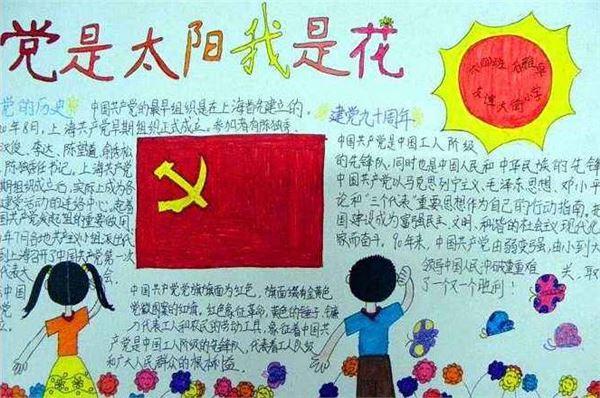 党是太阳我是花
六四班 石雅卓
友谊大街小学
党的历史
中国共产党的最早组织是在上海首先建立的,
年8月,上海共产党早期组织正式成立。参加者有陈独秀、
汉俊、李达、陈望道、俞秀松
陈独秀任书记。上海共产党
期组织成立后,实际上成为各
建党活动的联络中心,起着
国共产党发起组的重要作用。
年7月各地共产主义小组派出代
到上海召开了中国共产党第一
代表大会
中国
中国共产党党旗旗面为红色,旗面缀有金黄色
党徽图案的红旗,红色象征革命,黄色的锤子、镰
刀代表工人和农民的劳动工具,象征着中国共
产党是中国工人阶级的先锋队,代表着工人阶级
和广大人民群众的根本利益。
建党九十周年
中国共产党是中国工人阶级
的先锋队,同时也是中国人民和中华民族的先锋
中国共产党以马克思列宁主义、毛泽东思想、邓小平
论和“三个代表”重要思想作为自己的行动指南。把
国建设成为富强民主、文明、和谐的社会主义现代化
家而奋斗。90年来,中国共产党由弱变强、由小到大
领导中国人民冲破重重难关,取
了一次又一个胜利!